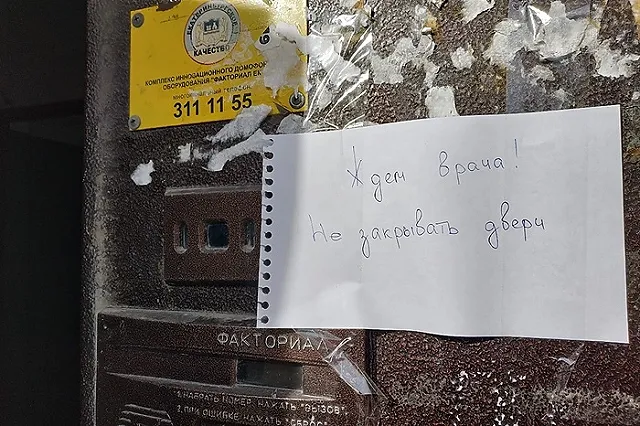 ЕКАТЕРИНБУРГСКОЕ
КАЧЕСТВО
КОМПЛЕКС ИННОВАЦИОННОГО ДОМОФОН
ОБОРУДОВАНИЯ "ФАКТОРИАЛ ЕК
МНОГОКАНАЛЬНЫЙ ТЕЛЕФОН
311 11 55
Ждем врача!
Не закрывать двери
ФАКТОРИАЛ
1. НАБРАТЬ НОМЕР, НАЖАТЬ "ВЫЗОВ".
2. ПРИ ОШИБКЕ НАЖАТЬ "СБРОС"